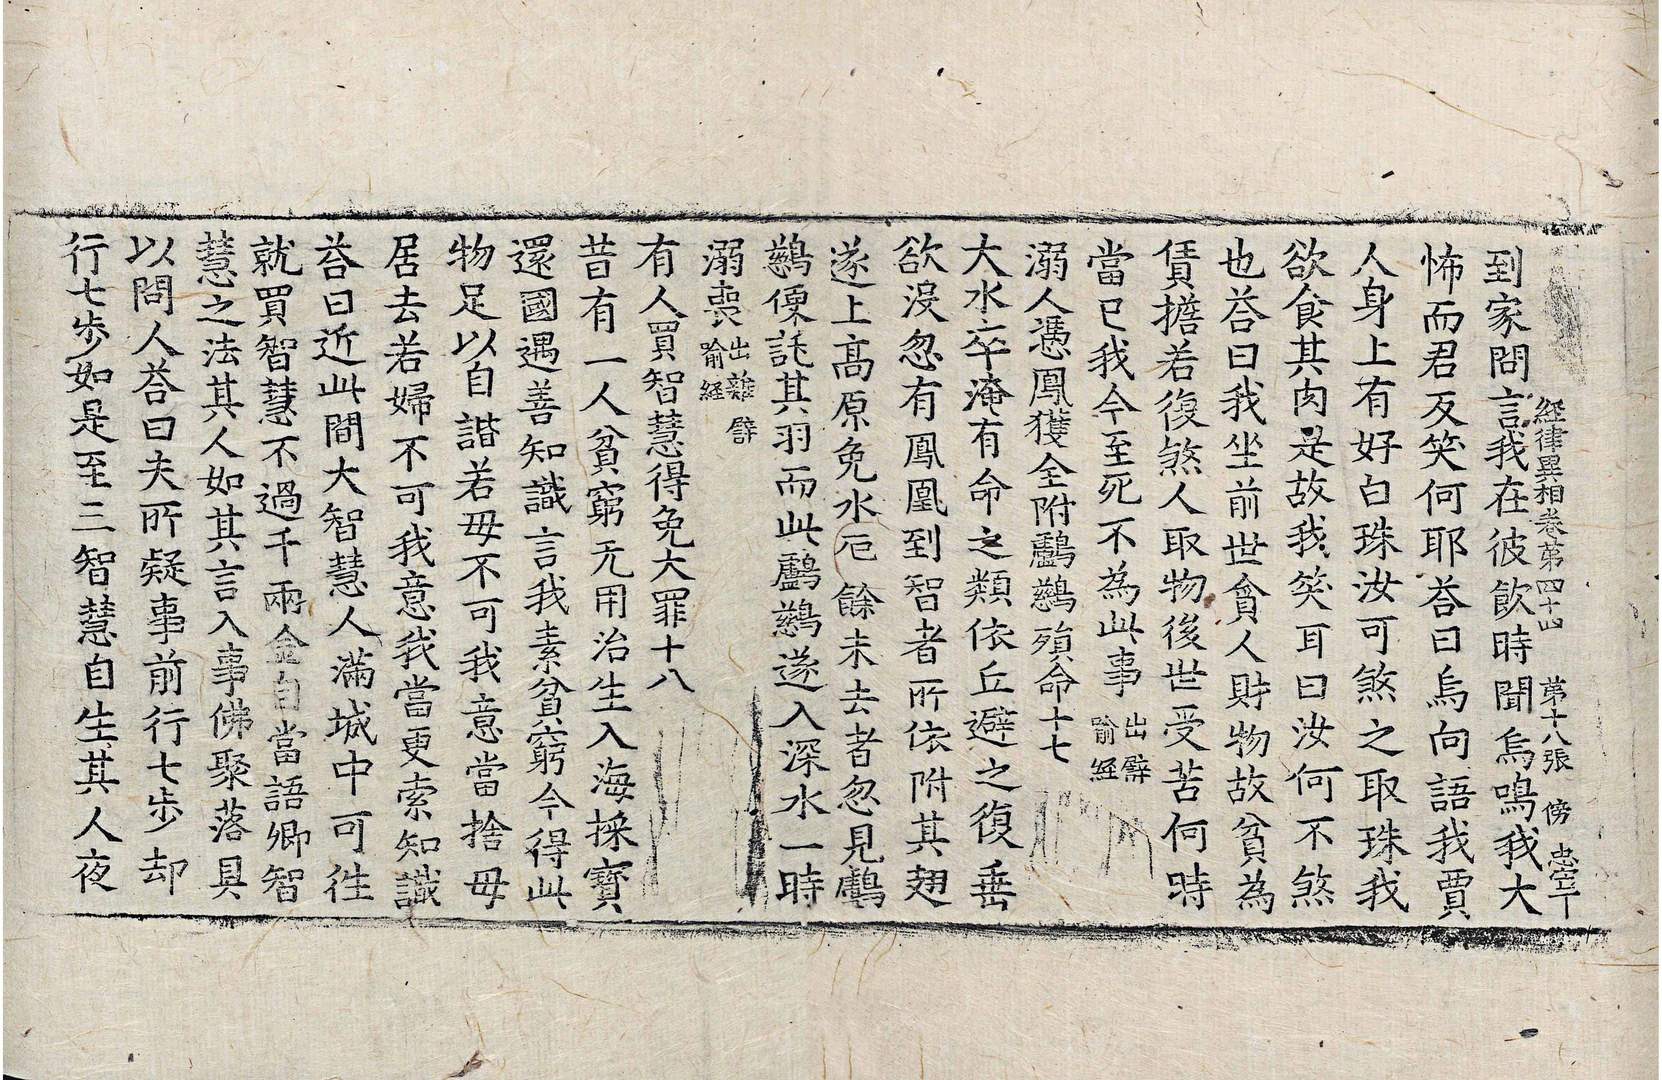 經律異相卷第四十四 第十八張 傍 忠宁
到家問言我在彼飲時聞烏鳴我大
怖而君反笑何耶荅曰烏向語我賈
人身上有好白珠汝可煞之取珠我
欲食其肉是故我笑耳曰汝何不煞
也荅曰我坐前世貪人財物故貧為
賃擔若復煞人取物後世受苦何時
當已我今至死不為此事出譬喻經
溺人憑鳳獲全附鸕鷀殞命十七
大水卒淹有命之類依丘避之復垂
欲沒忽有鳳凰到智者所依附其翅
遂上高原免水厄餘未去者忽見鸕
鷀便託其羽而此鸕鷀遂入深水一時
溺喪出雜譬喻經
有人買智慧得免大罪十八
昔有一人貧窮无用治生入海採寶
還國遇善知識言我素貧窮今得此
物足以自諧若毋不可我意當捨毋
居去若婦不可我意我當更索知識
荅曰近此間大智慧人滿城中可徃
就買智慧不過千兩金自當語卿智
慧之法其人如其言入事佛聚落具
以問人荅曰夫所疑事前行七步却
行七步如是至三智慧自生其人夜